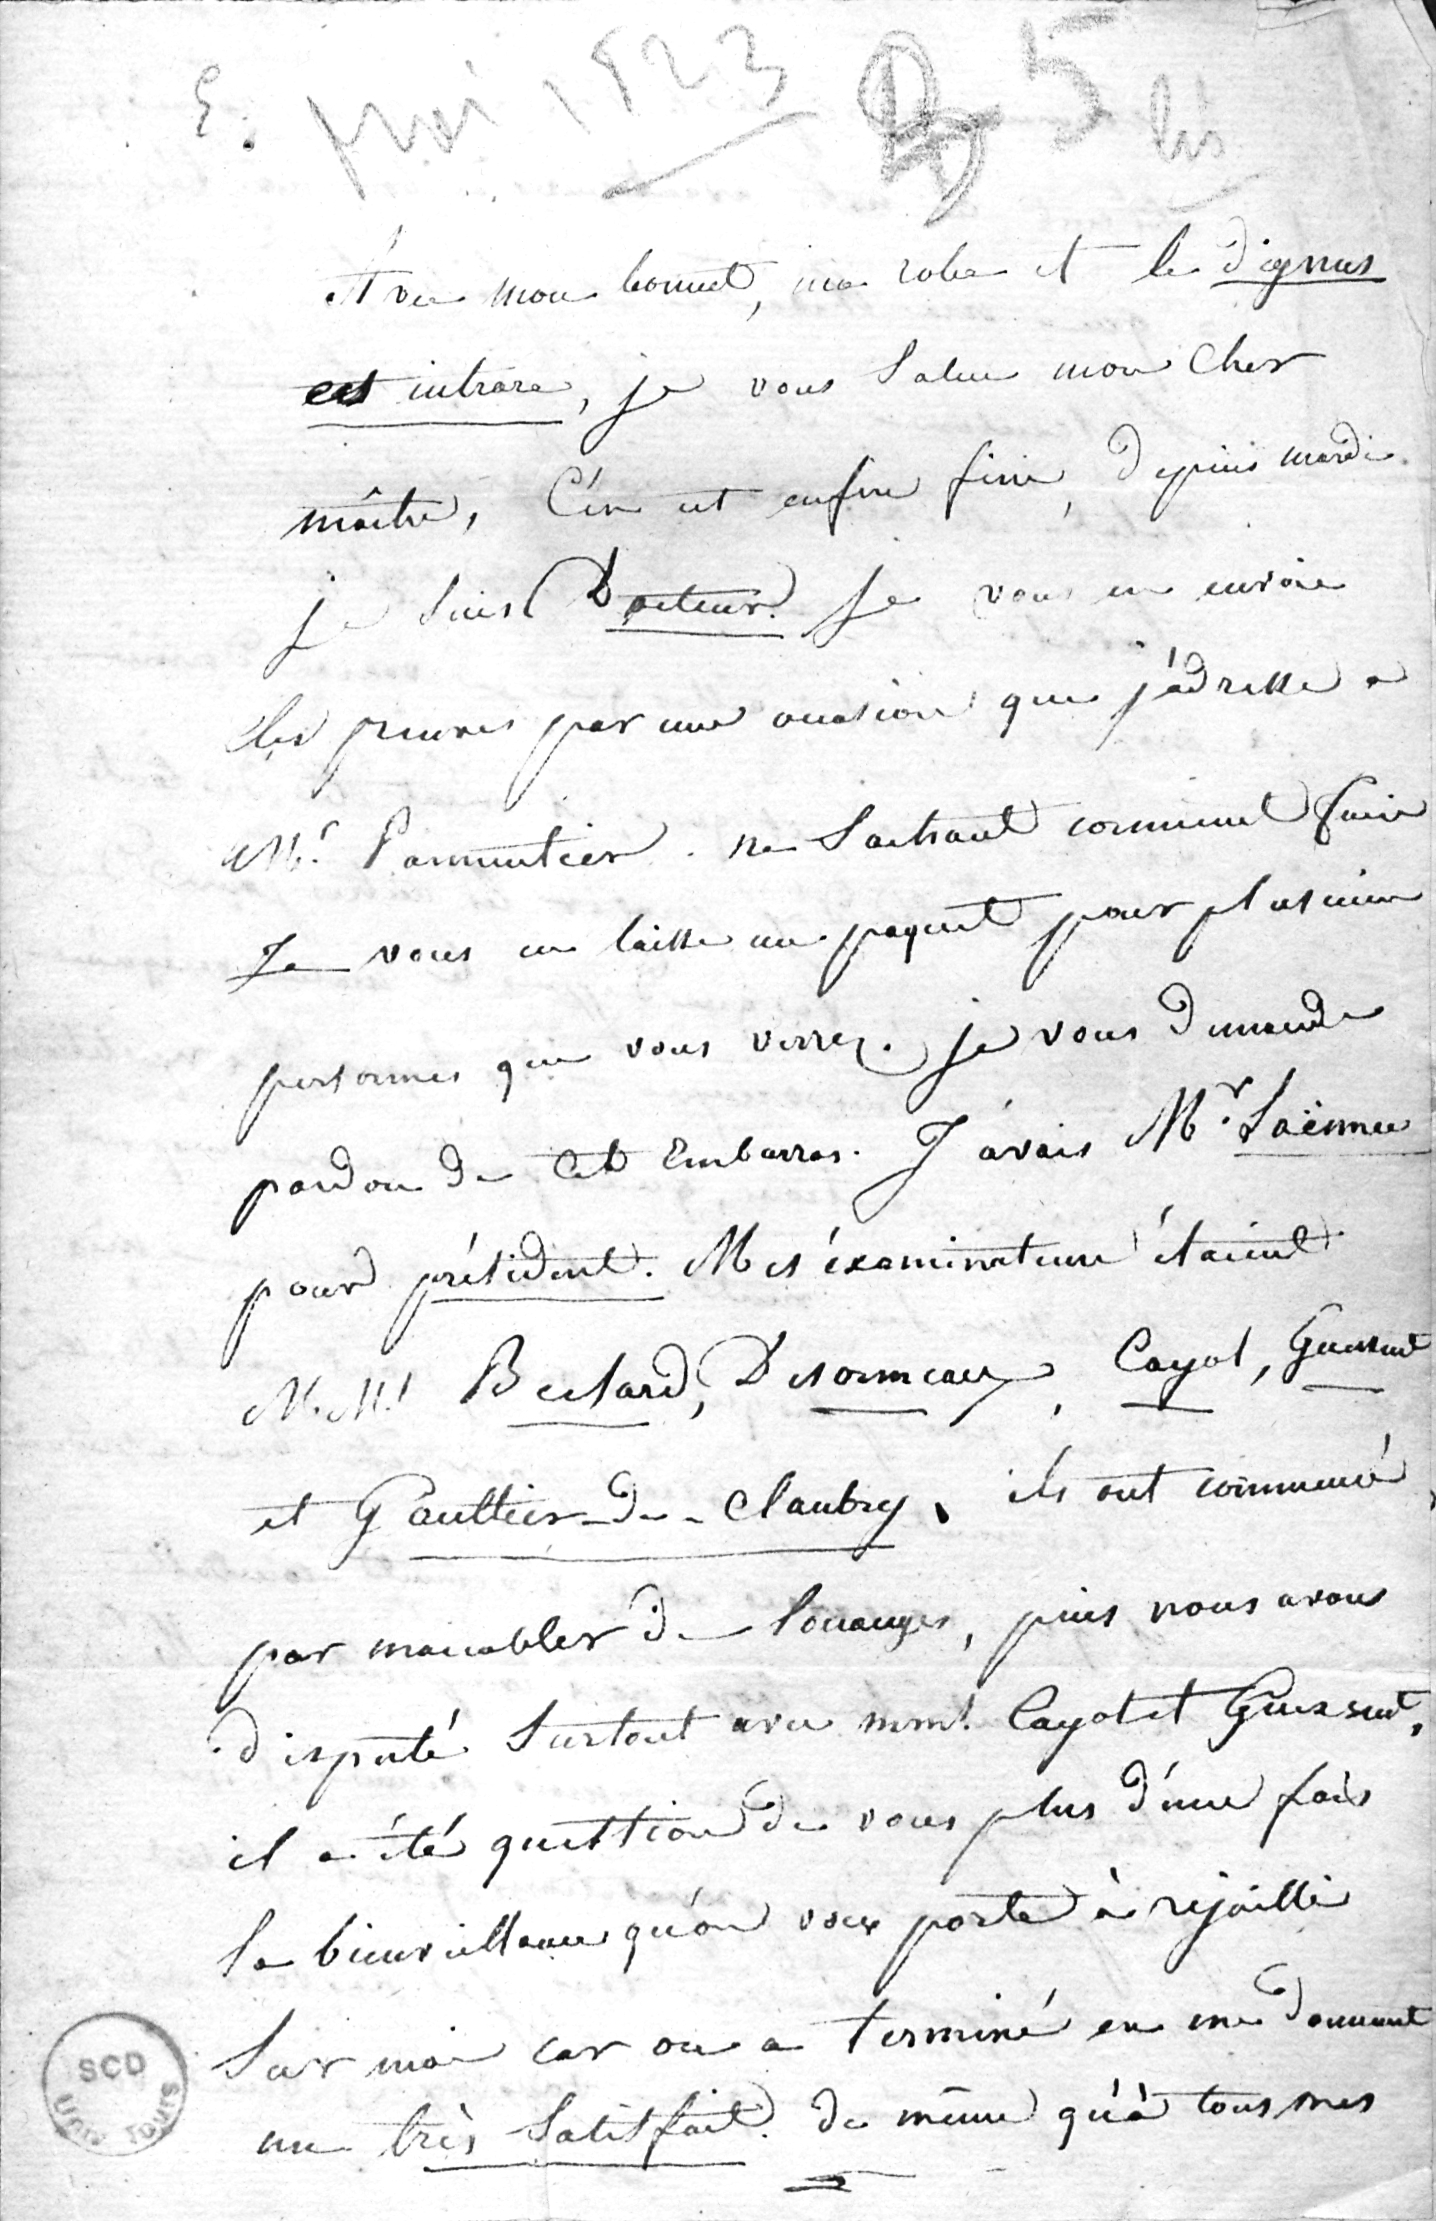 Mai 1823 5 bis
Avec mon bonnet, ma robe et le dignus
est intrare, je vous salue mon cher
maître, C'en est enfin fini, depuis mardi
je suis Docteur. Je vous en envoie
les preuves par une occasion que j'adresse a
Mr. Parmentier. ne sachant comment faire
Je vous en laisse un paquet pour plusieurs
personnes que vous verrez. je vous demande
pardon de cet Embarras. J'avais Mr. Laënnec
pour président. Mes éxaminateurs étaient
M.Mrs Beclard, Desormeaux, Cayol, Guersent
et Gaultier-de-Claubry. ils ont commencé
par m'accabler de louanges, puis nous avons
disputé surtout avec mmrs. Cayol et Guersent,
il a été question de vous plus d'une fois
la bienveillance qu'on vous porte à rejailli
sur moi car on a terminé en me donnant
un très satisfait. de même qu'à tous mes
SCD
Univ Tours